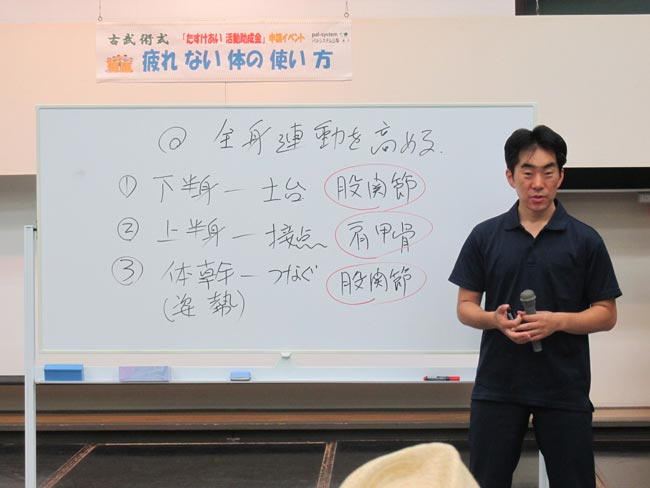 古武術式 「たすけあい 活動助成金」申請イベント pal-system
疲れない体の使い方
◎ 全身連動を高める.
① 下半身ー土台 股関節
② 上半身ー接点 肩甲骨
③ 体幹ーつなぐ 股関節
(姿勢)